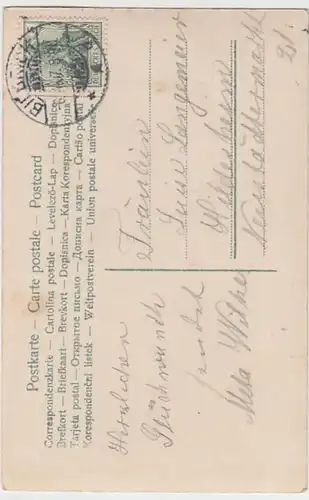 Postkarte — Carte postale — Postcard
Correspondenzkarte — Cartolina postale — Levelező-Lap — Dopisnice
Brefkort — Briefkaart — Brevkort — Dopisnica — Karta Korespondencyjna
Tarjeta postal — Открытое письмо — Дописна карта — Cartão postal
Korespondenční lístek — Weltpostverein — Union postale universelle
Fräulein
Luise Langemeier
Hildesheim
Neustädtermarkt
21
Herzlichen
Glückwunsch
sendet
Meta